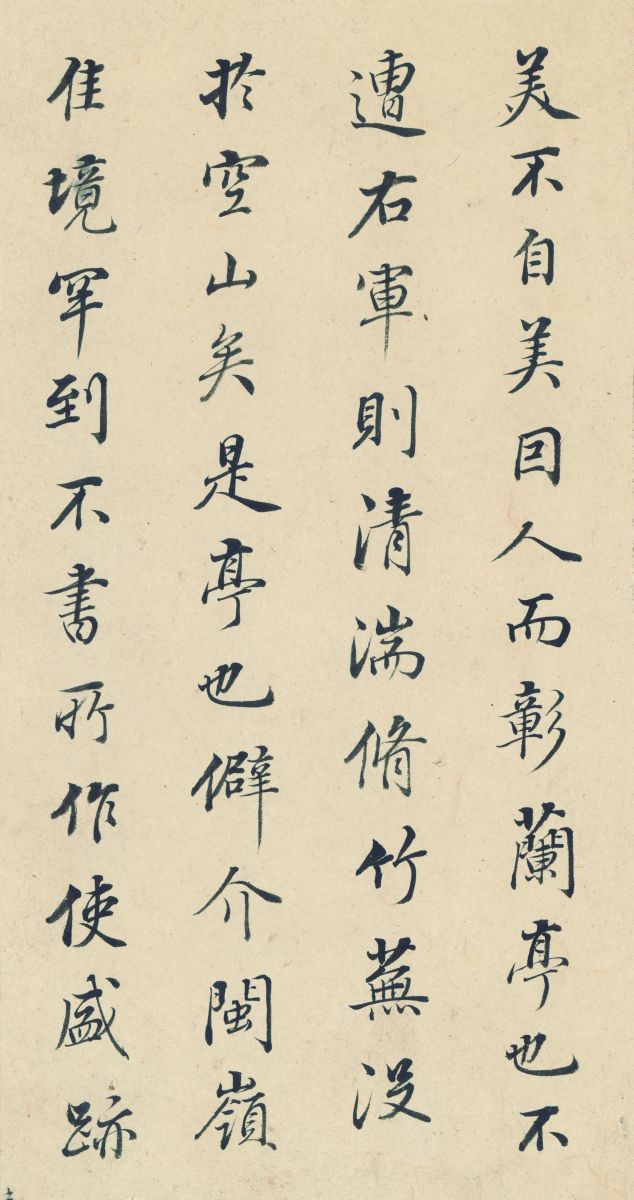 美不自美因人而彰蘭亭也不
遭右軍則清湍脩竹蕪没
於空山矣是亭也僻介閩嶺
佳境罕到不書所作使盛跡